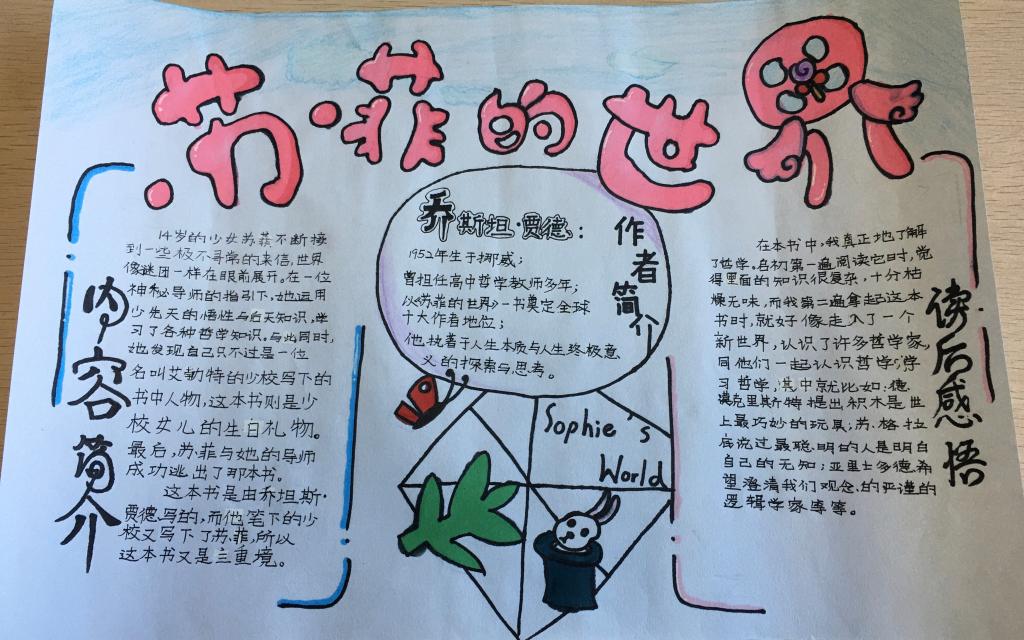 苏·菲的世界
内容简介
14岁的少女苏菲不断接
到一些极不寻常的来信,世界
像谜团一样在眼前展开。在一位
神秘导师的指引下,她运用
少先天的悟性与后天知识,学
习了各种哲学知识。与此同时,
她发现自己只不过是一位
名叫艾勒特的少校写下的
书中人物,这本书则是少
校女儿的生日礼物。
最后,苏菲与她的导师
成功逃出了那本书。
这本书是由乔坦斯·
贾德写的,而他笔下的少
校又写下了苏菲,所以
这本书又是三重境。
作者简介
乔斯坦·贾德:
1952年生于挪威;
曾担任高中哲学教师多年;
以《苏菲的世界》一书奠定全球
十大作者地位;
他执着于人生本质与人生终极意
义的探索与思考。
Sophie's
World
读后感悟
在本书中,我真正地了解
了哲学。启初第一遍阅读它时,觉
得里面的知识很复杂,十分枯
燥无味,而我第二遍拿起这本
书时,就好像走入了一个
新世界,认识了许多哲学家,
同他们一起认识哲学,学
习哲学,其中就比如:德
谟克里斯特提出积木是世
上最巧妙的玩具;苏·格·拉
底说过最聪明的人是明白
自己的无知;亚里士多德希
望澄清我们观念的严谨的
逻辑学家等等。